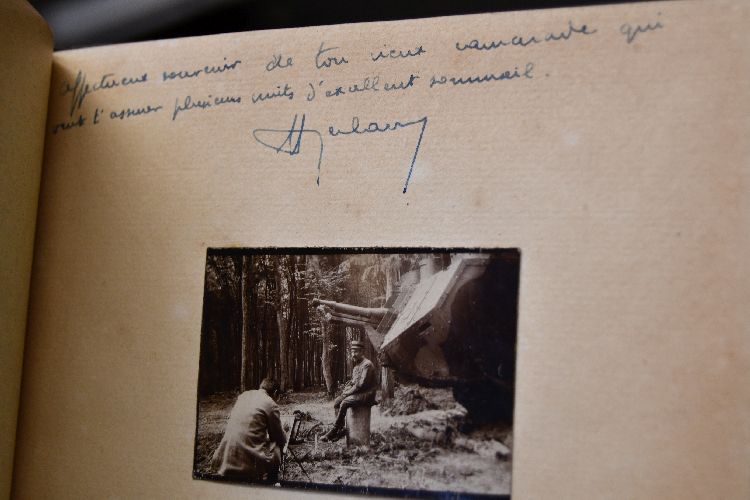 affectueux souvenir de ton vieux camarade qui
veut t'assurer plusieurs nuits d'excellent sommeil.